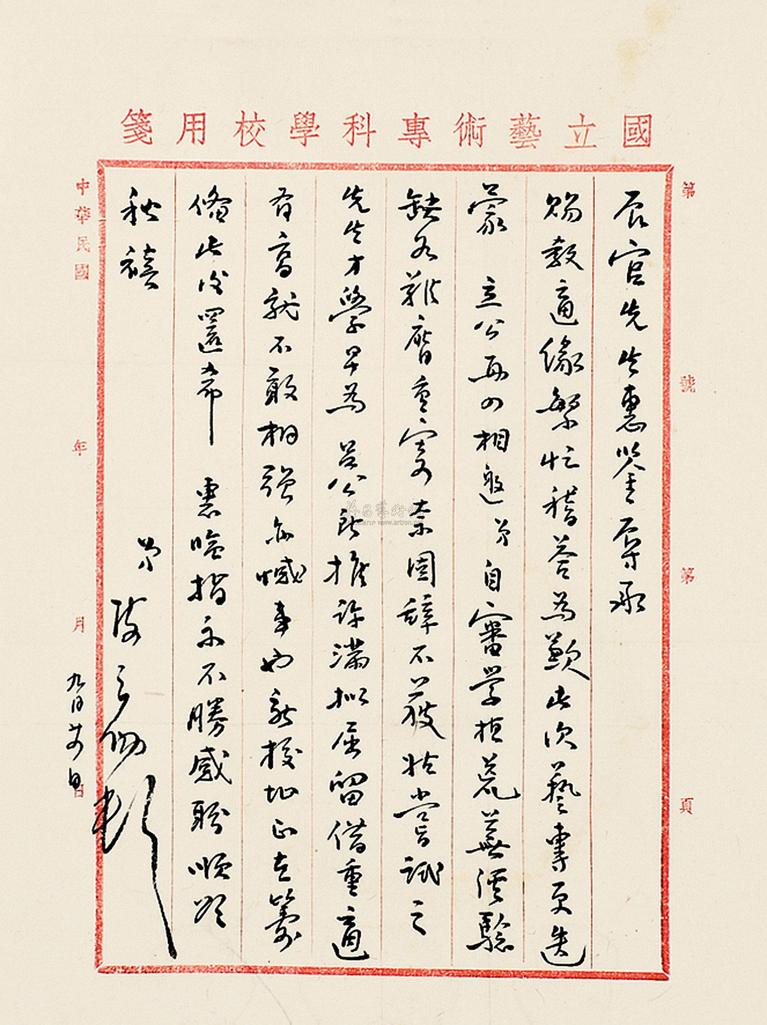 國立藝術專科學校用箋
第 號 第 頁
辰官先生惠鑒辱承
賜教適緣繁忙稽答為歉此次藝專更迭
蒙 立公再四相邀弟自審學植荒蕪經驗
缺乏難膺重寄奈固辭不獲姑嘗試之
先生才學早為呂公所推許滿擬屈留借重適
有高就不敢相強亦憾事也新校址正在籌
備此後還希 惠指示不勝感盼順頌
秋禧
弟陳之佛頓
九月廿日
中華民國 年 月 日